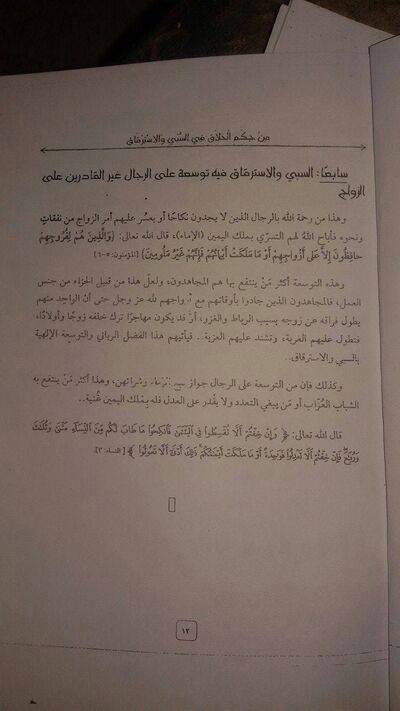 من حِكم الخلاق في السَّبي والاسترقاق
سابعًا: السبي والاسترقاق فيه توسعة على الرجال غير القادرين على
الزواج
وهذا من رحمة الله بالرجال الذين لا يجدون نكاحًا أو يعسُر عليهم أمر الزواج من نفقاتٍ
ونحوه فأباح الله لهم التسرّي بملك اليمين (الإماء)، قال الله تعالى: {وَالَّذِينَ هُمْ لِفُرُوجِهِمْ
حَافِظُونَ إِلَّا عَلَى أَزْوَاجِهِمْ أَوْ مَا مَلَكَتْ أَيْمَانُهُمْ فَإِنَّهُمْ غَيْرُ مَلُومِينَ} [المؤمنون: ٥-٦]
وهذه التوسعة أكثر مَنْ ينتفع بها هم المجاهدون، ولعلّ هذا من قبيل الجزاء من جنس
العمل، فالمجاهدون الذين جادوا بأوقاتهم مع أزواجهم لله عز وجل حتى أنّ الواحد منهم
يطول فراقه عن زوجه بسبب الرباط والغزو، أو قد يكون مهاجرًا ترك خلفه زوجًا وأولادًا،
فتطول عليهم الغربة، وتشتد عليهم العزبة.. فيأتيهم هذا الفضل الرباني والتوسعة الإلهية
بالسبي والاسترقاق..
وكذلك فإن من التوسعة على الرجال جواز وشرائهن، وهذا أكثر مَنْ ينتفع به
الشباب العُزّاب أو مَن يبغي التعدد ولا يقدر على العدل فله بملك اليمين غُنية..
قال الله تعالى: ﴿ وَإِنْ خِفْتُمْ أَلَّا تُقْسِطُوا فِي الْيَتَامَى فَانكِحُوا مَا طَابَ لَكُم مِّنَ النِّسَاءِ مَثْنَى وَثُلَاثَ
وَرُبَاعَ فَإِنْ خِفْتُمْ أَلَّا تَعْدِلُوا فَوَاحِدَةً أَوْ مَا مَلَكَتْ أَيْمَانُكُمْ ذَلِكَ أَدْنَى أَلَّا تَعُولُوا ﴾ [النساء: ٣].
١٢